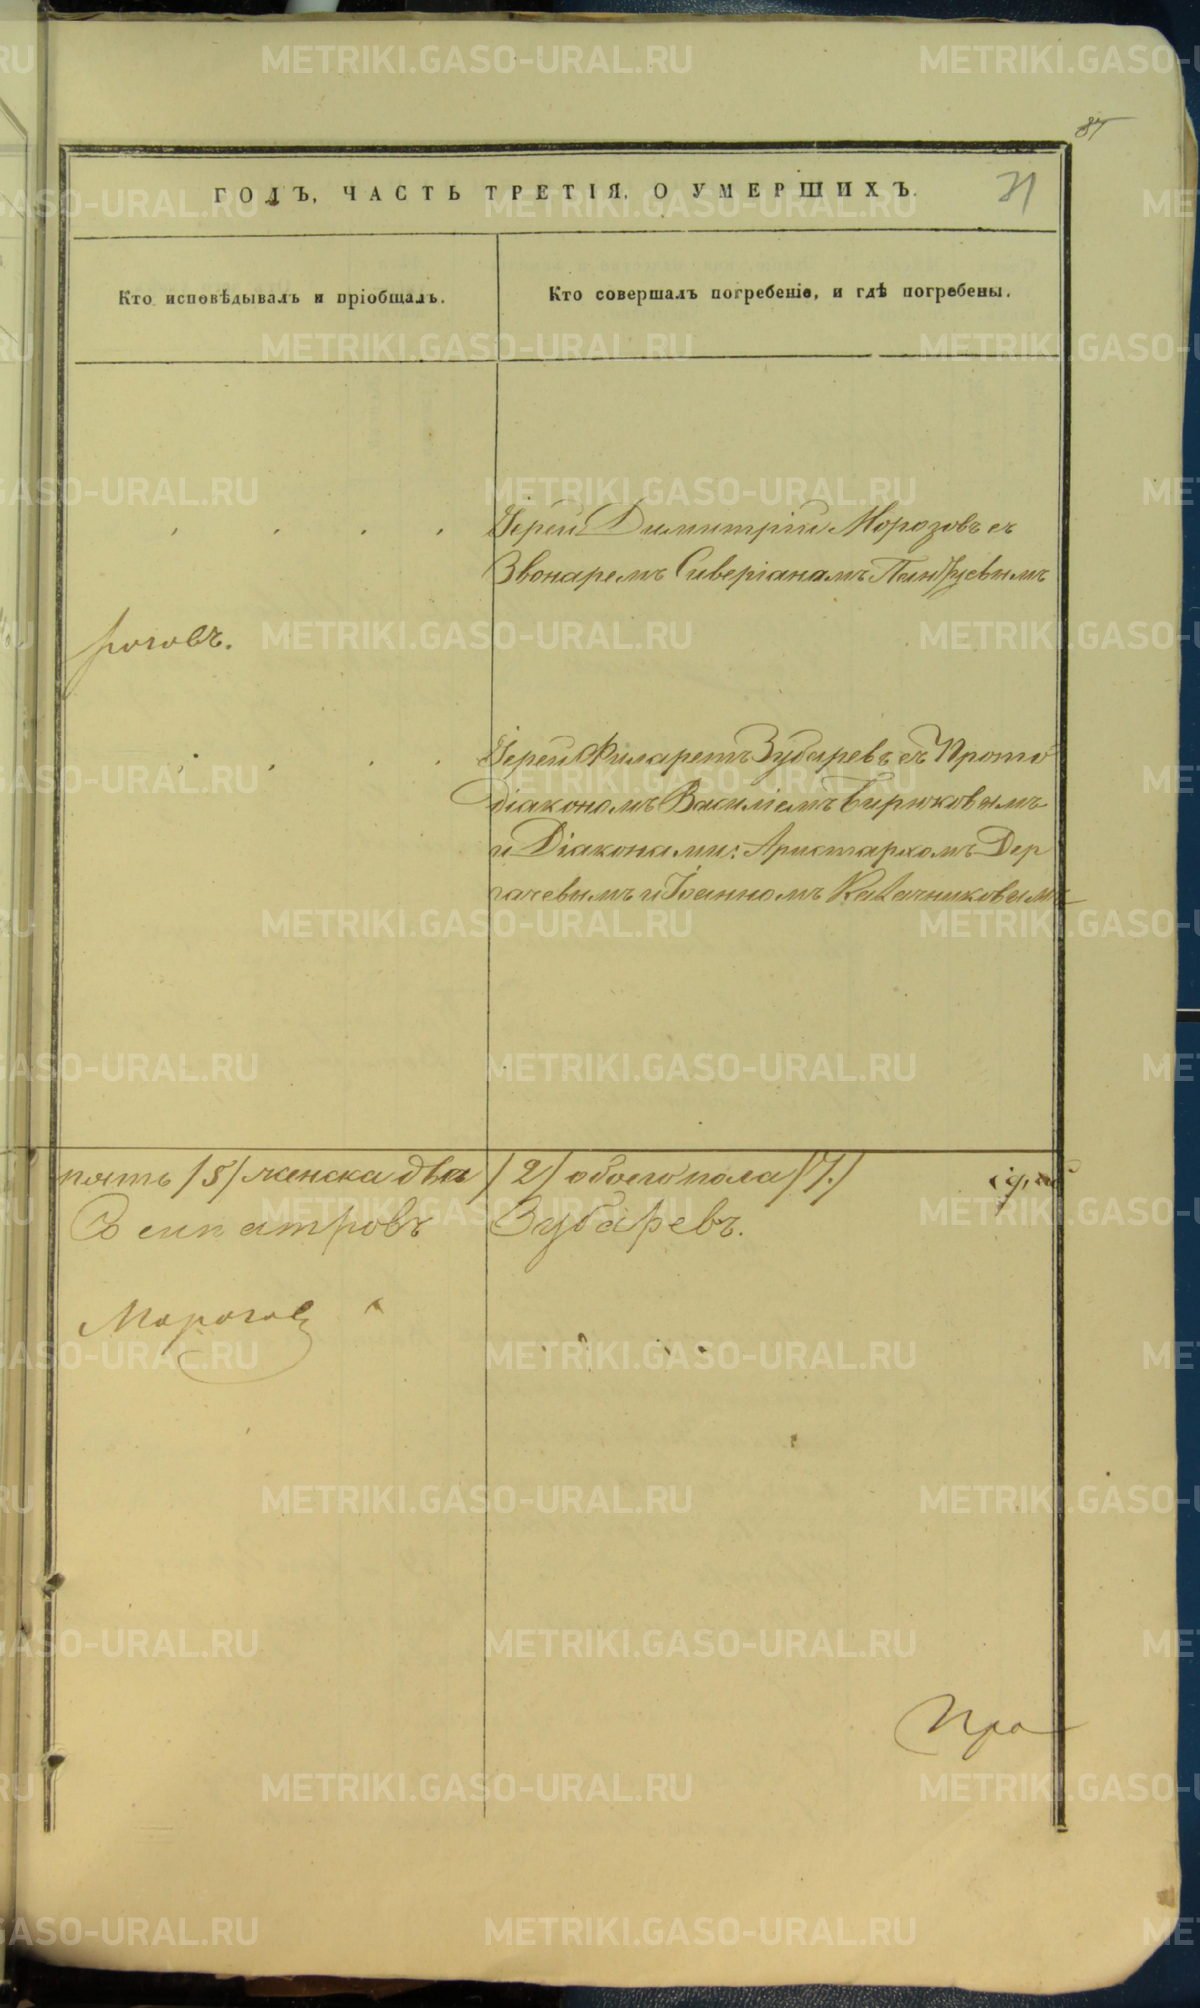 87
ГОДЪ, ЧАСТЬ ТРЕТІЯ, О УМЕРШИХЪ.
31
Кто исповѣдывалъ и пріобщалъ.
Кто совершалъ погребеніе, и гдѣ погребены.
Іерей Димитрій Морозовъ съ
Звонаремъ Сиверіаномъ
роговъ.
Іерей Филаретъ Зубаревъ съ Прото
діакономъ Василіемъ Бирюковымъ
и Діаконами: Аристархомъ Дер
гачевымъ и Іоанномъ Калачниковымъ
пять /5/ женска два /2/ обоего пола /7./
Сосипатровъ Зубаревъ.
Морозов
Про
METRIKI.GASO-URAL.RU